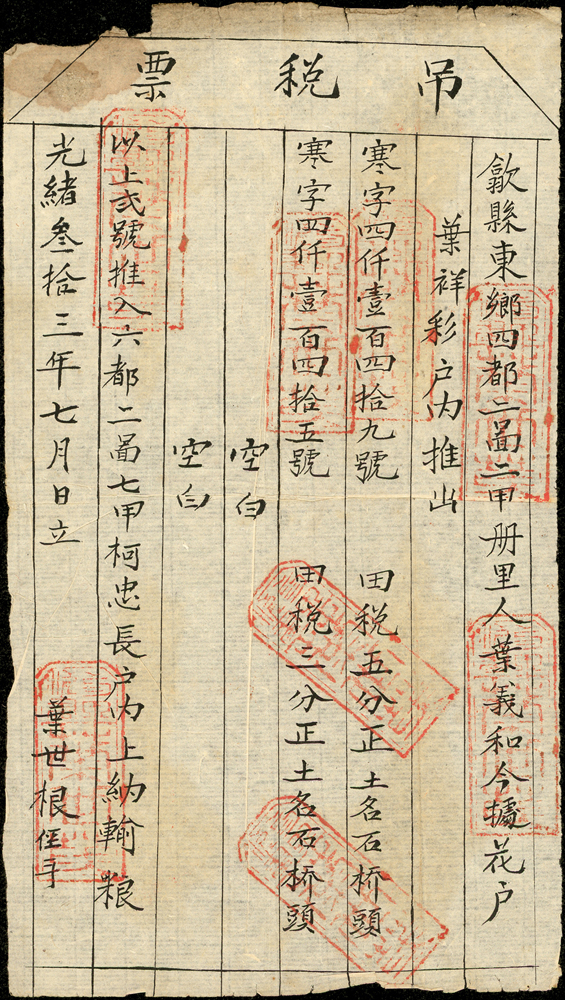 吊税票
歙縣東鄉四都二啚二甲册里人葉義和今據花户
葉祥彩户内推出
寒字四仟壹百四拾九號 田税五分正土名石桥頭
寒字四仟壹百四拾五號 田税二分正土名石桥頭
空白
空白
以上弍號推入六都二啚七甲柯忠長户内上納輸粮
光緒叁拾三年七月日立
葉世根